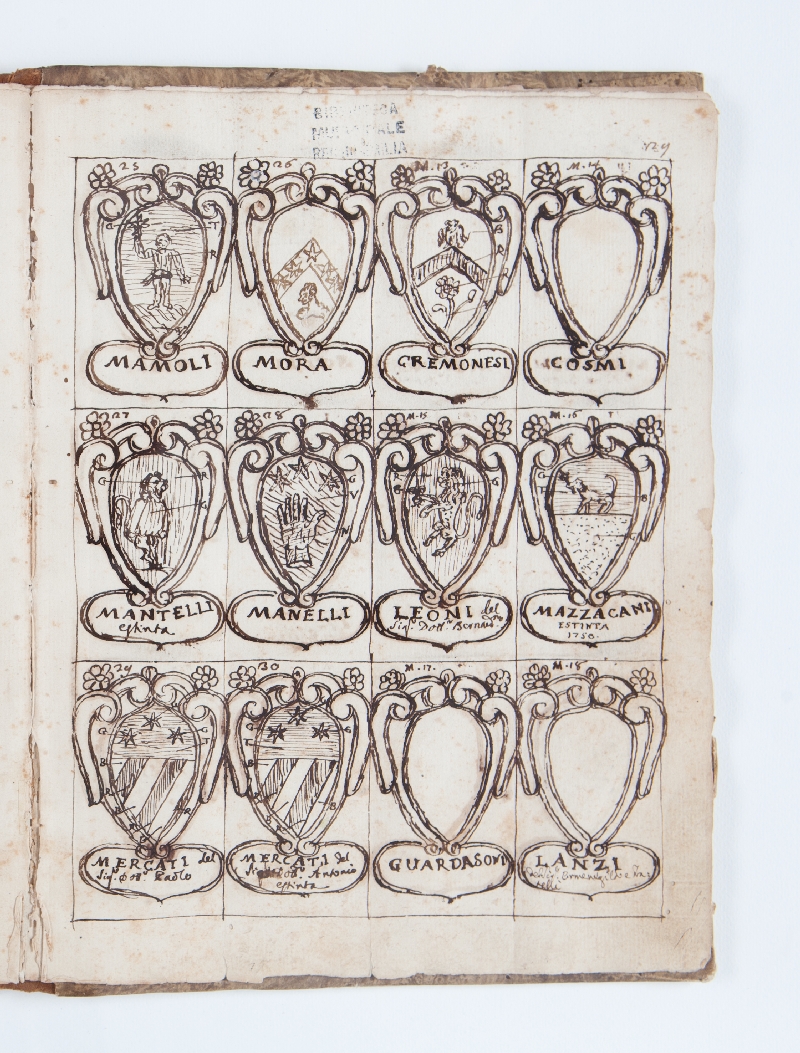 BIBLIOTECA
MUNICIPALE
REGGIO EMILIA
25 26 M.13 M.14
G T R
G R
MAMOLI MORA CREMONESI COSMI
27 28 M.15 M.16
G R G
G V N
R G
G T B
MANTELLI
estinta
MANELLI
LEONI del
Sig.r Dott.r
MAZZACANI
ESTINTA
1750.
29 30 M.17. M.18
G G T B B R R
G G T B R B
MERCATI del
Sig.r Dott.r Paolo
MERCATI del
Antonio
estinta
GUARDASONI
LANZI